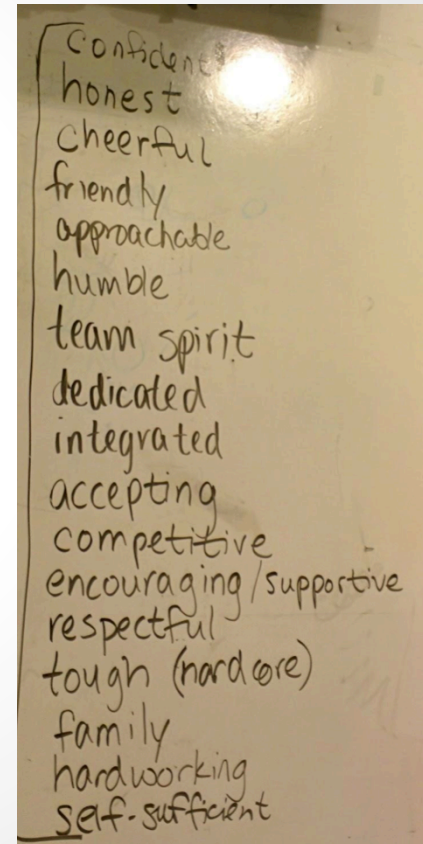 confident
honest
cheerful
friendly
approachable
humble
team spirit
dedicated
integrated
accepting
competitive
encouraging/supportive
respectful
tough (hardcore)
family
hardworking
self-sufficient